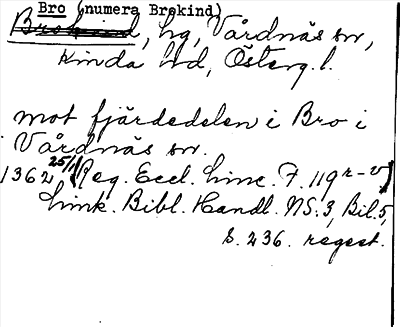 Bro (numera Brokind)
Brokind, hg, Vårdnäs sn,
Kinda hd, Österg. l.
mot fjärdedelen i Bro i
Vårdnäs sn.
1362 25/1 (Reg. Eccl. Linc. F. 119 r-v)
Link. Bibl. Handl. NS:3, Bil. 5,
S. 236. regest.